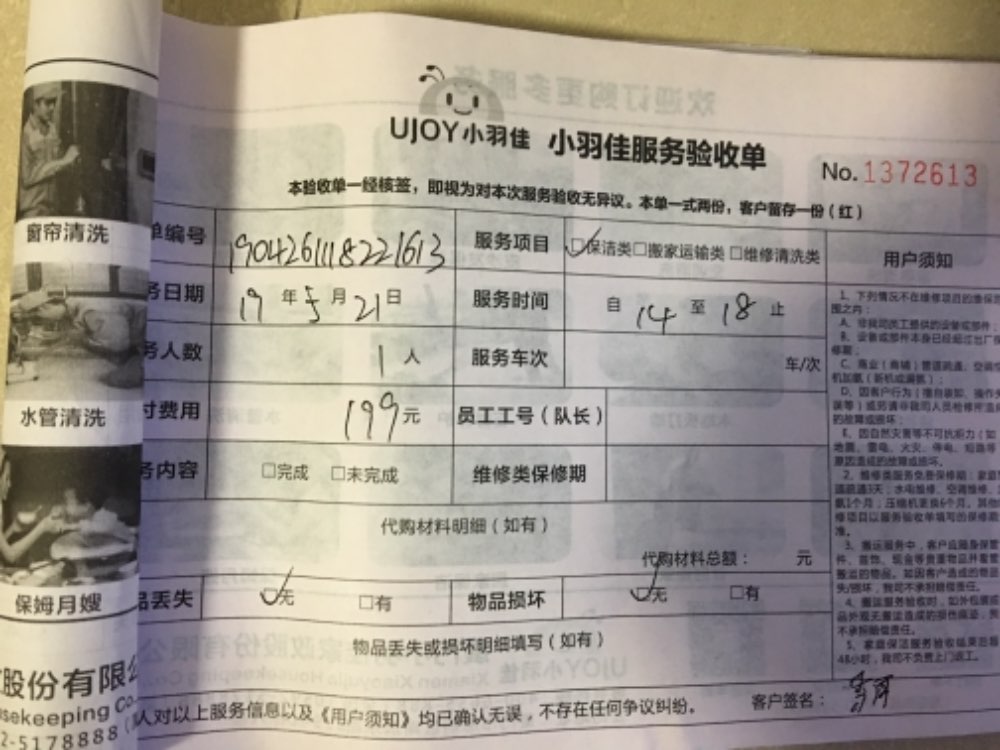 UJOY小羽佳 小羽佳服务验收单
No.1372613
本验收单一经核签，即视为对本次服务验收无异议。本单一式两份，客户留存一份（红）
单编号 1904261118221613 服务项目 ☑保洁类□搬家运输类□维修清洗类 用户须知
务日期 19年5月21日 服务时间 自14至18止
务人数 1人 服务车次 车/次
付费用 199元 员工工号（队长）
务内容 □完成 □未完成 维修类保修期
代购材料明细（如有）
代购材料总额： 元
品丢失 ☑无 □有 物品损坏 ☑无 □有
物品丢失或损坏明细填写（如有）
人对以上服务信息以及《用户须知》均已确认无误，不存在任何争议纠纷。 客户签名：
1、下列情况不在维修项目的维保范
围之内：
A、非我司员工提供的设备或部件；
B、设备或部件本身已经超过出厂保
修期；
C、商业（商铺）管道疏通、空调
机加氨（新机或漏氨）；
D、因客户行为（擅自装卸、操作失
误等）或另请非我司人员检修所造
的故障或损坏；
E、因自然灾害等不可抗拒力（如
地震、雷电、火灾、停电、短路等
原因造成的故障或损坏。
2、维修类服务免费保修期：家庭
道疏通3天；水电维修、空调维修、
氨1个月；压缩机更换6个月。其他
修项目以服务验收单填写的保修期
准。
3、搬运服务中，客户应随身保管
件、首饰、现金等贵重物品并看管
搬运的物品。如因客户造成的物品
失/损坏，我司不承担赔偿责任。
4、搬运服务验收时，如外包装
品外观无搬运造成的损伤痕迹，
不承担赔偿责任。
5、家庭保洁服务验收结束后超
48小时，我司不负责上门返工。
窗帘清洗
水管清洗
保姆月嫂
股份有限公
usekeeping Co
2-5178888